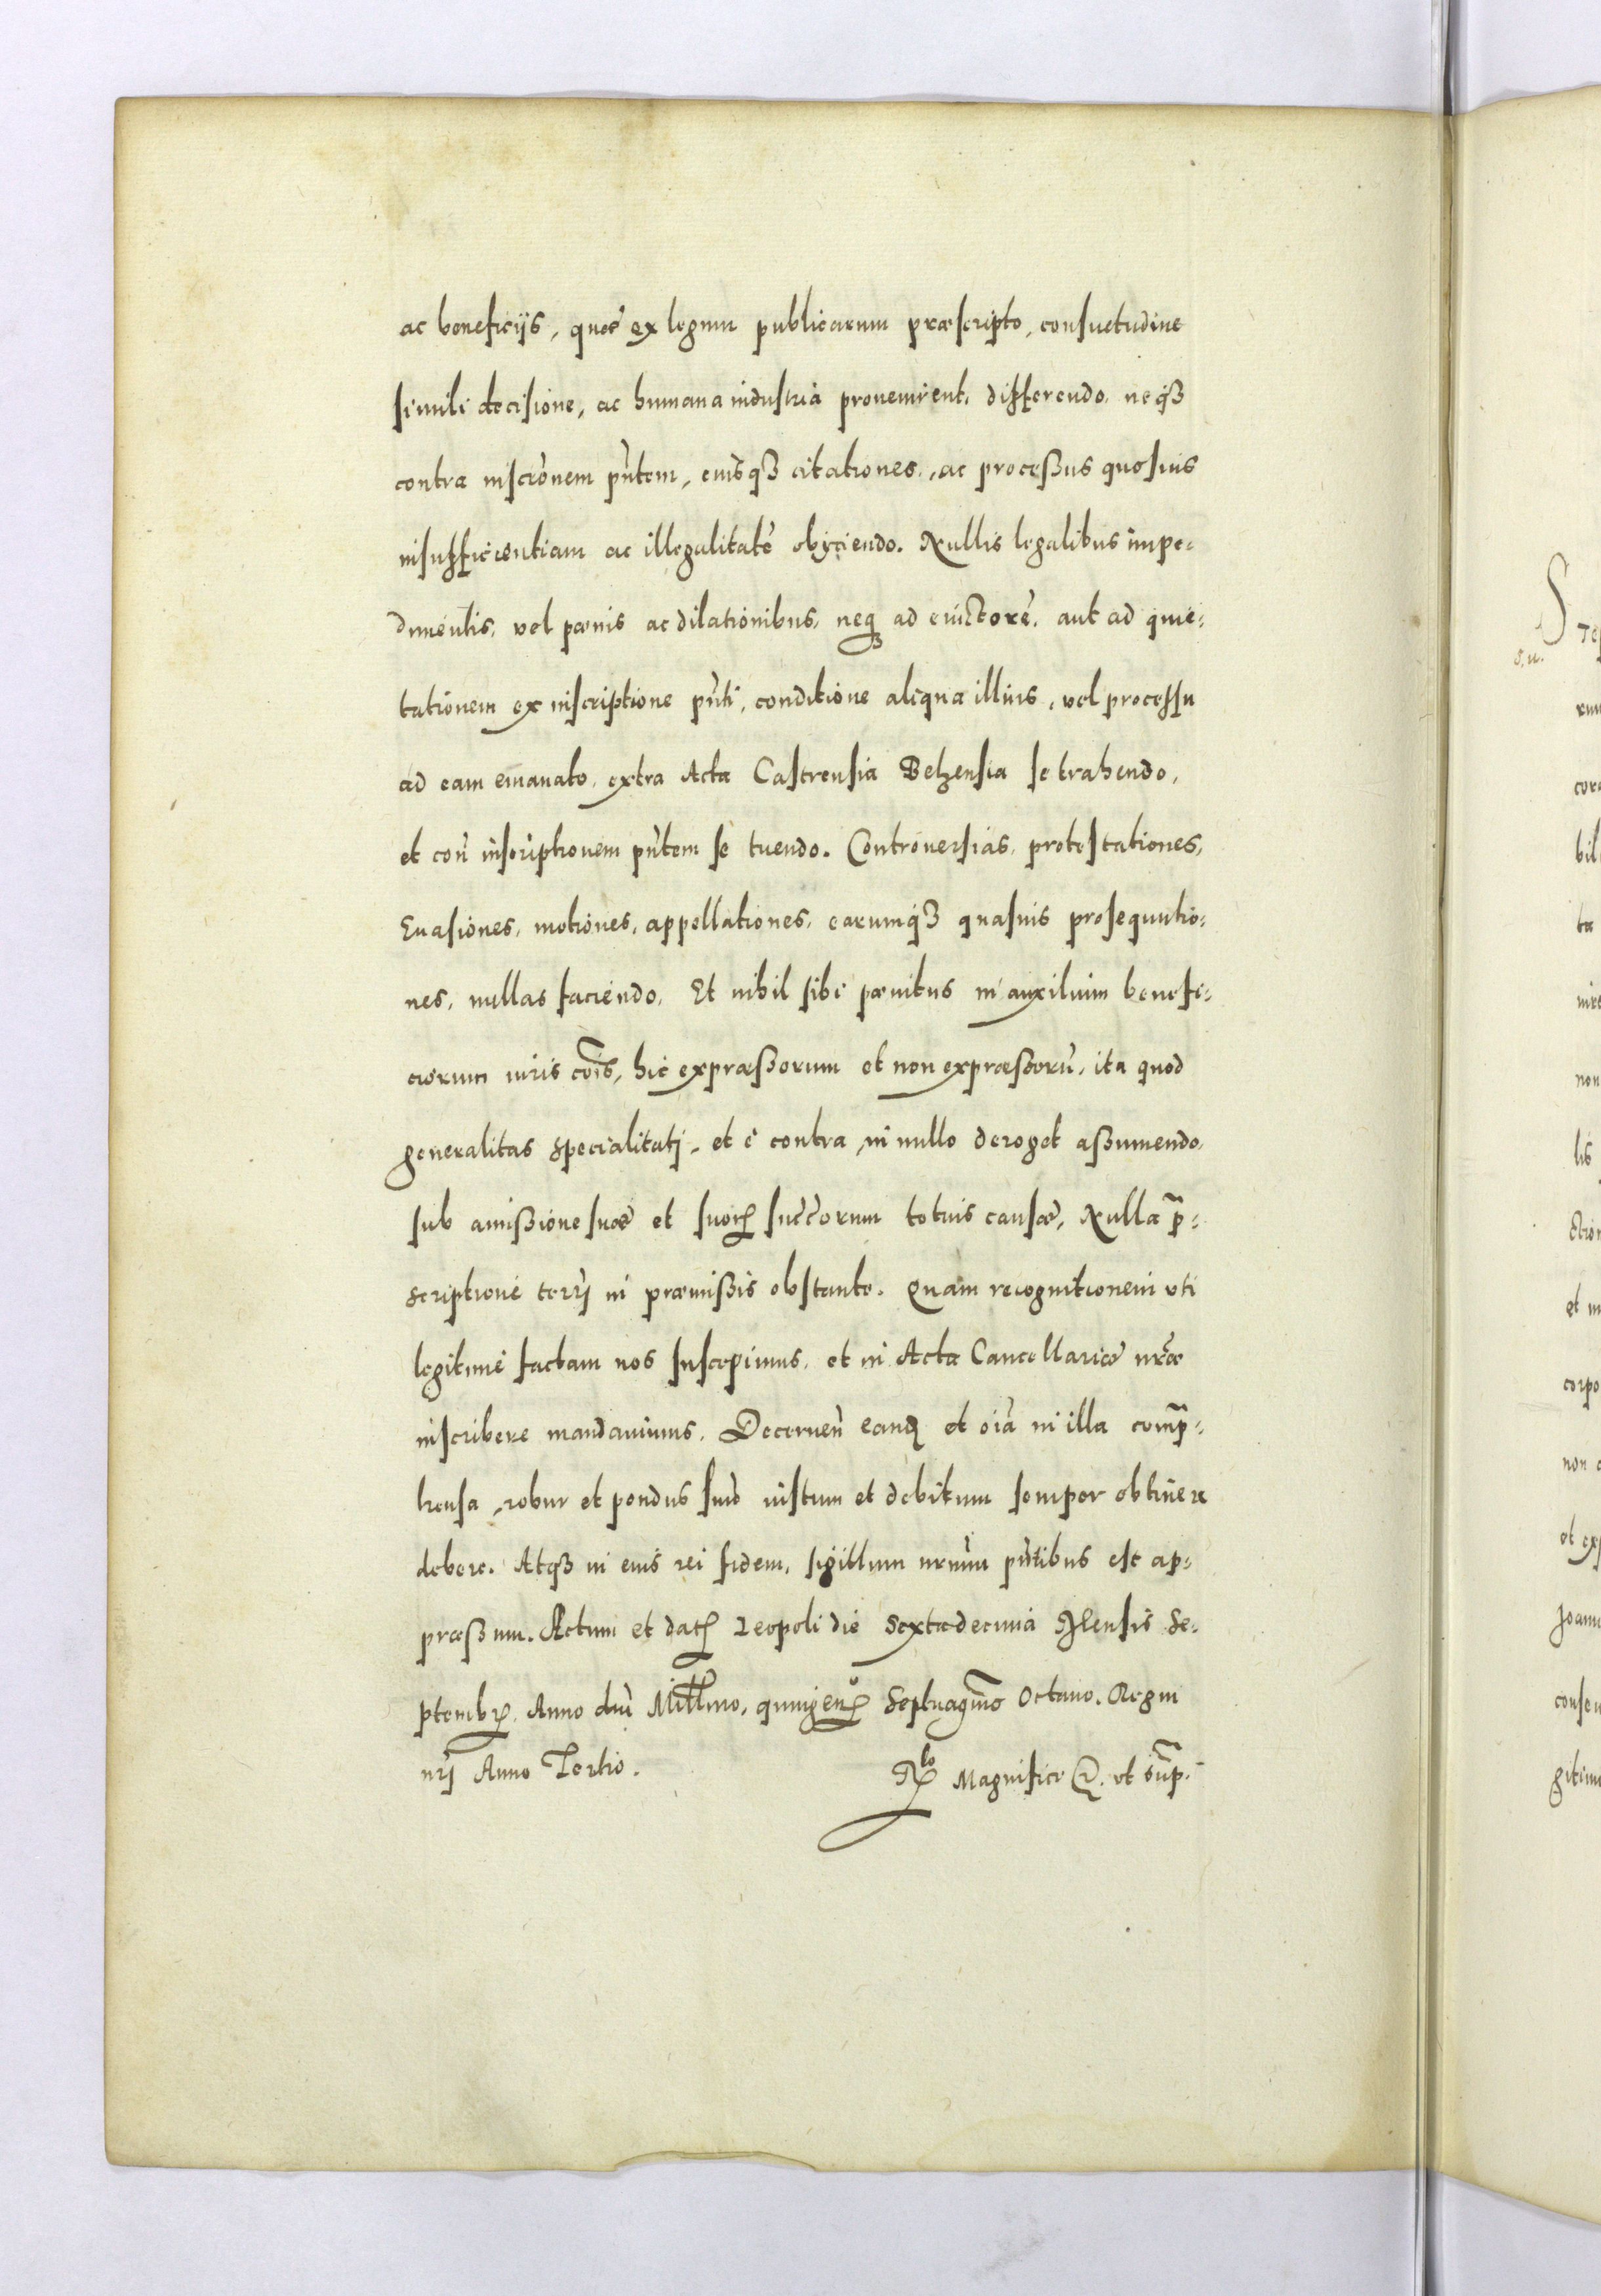 ac beneficijs, quae ex legum publicarum praescripto, consuetudine
simili decisione, ac humana industria provenirent, differendo, neqз
contra inscrönem pñtem, eiusqз citationes, ac processus quosuis
insufficientiam ac illegalitatē obijciendo. Nullis legalibus impe-
dimentis, vel poenis ac dilationibus, neqз ad euictorē, aut ad quie-
tationem ex inscriptione pñti, conditione aliqua illius, vel processu
ad eam emanato, extra Acta Castrensia Belzensia se trahendo,
et con̄ inscriptionem pñtem se tuendo. Controuersias, protestationes,
Euasiones, motiones, appellationes, earumqз quasuis prosequutio-
nes, nullas faciendo, Et nihil sibi poenitus in auxilium benefi-
ciorum iuris cōis, hic expraessorum et non expraessorū, ita quod
generalitas specialitati, et è contra, in nullo deroget assumendo,
sub amissione suae et suorꝝ succorum totius causae, Nulla p̄-
scriptione terrj in praemissis obstante. Quam recognitionem vti
legitime factam nos suscepimus, et in Acta Cancellariae nr̄ae
inscribere mandauimus. Decernen̄ eand et oīa in illa comp̄-
hensa, robur et pondus suū iustum et debitum semper obtinere
debere. Atqз in eius rei fidem, sigillum nrūm pn̄tibus est ap-
praessum. Actum et datꝝ Leopoli die Sextadecima Mensis Se-
ptembrꝭ. Anno dnī Millmo, quingenᵒ Septuagmo Octauo. Regni
nrī Anno Tertio.
Rlo Magnifici &. vt sup̄.
ru
cor
bil
ta
nire
non
lis
ction
et in
corpo
non
et exp
Joann
consen
gitim